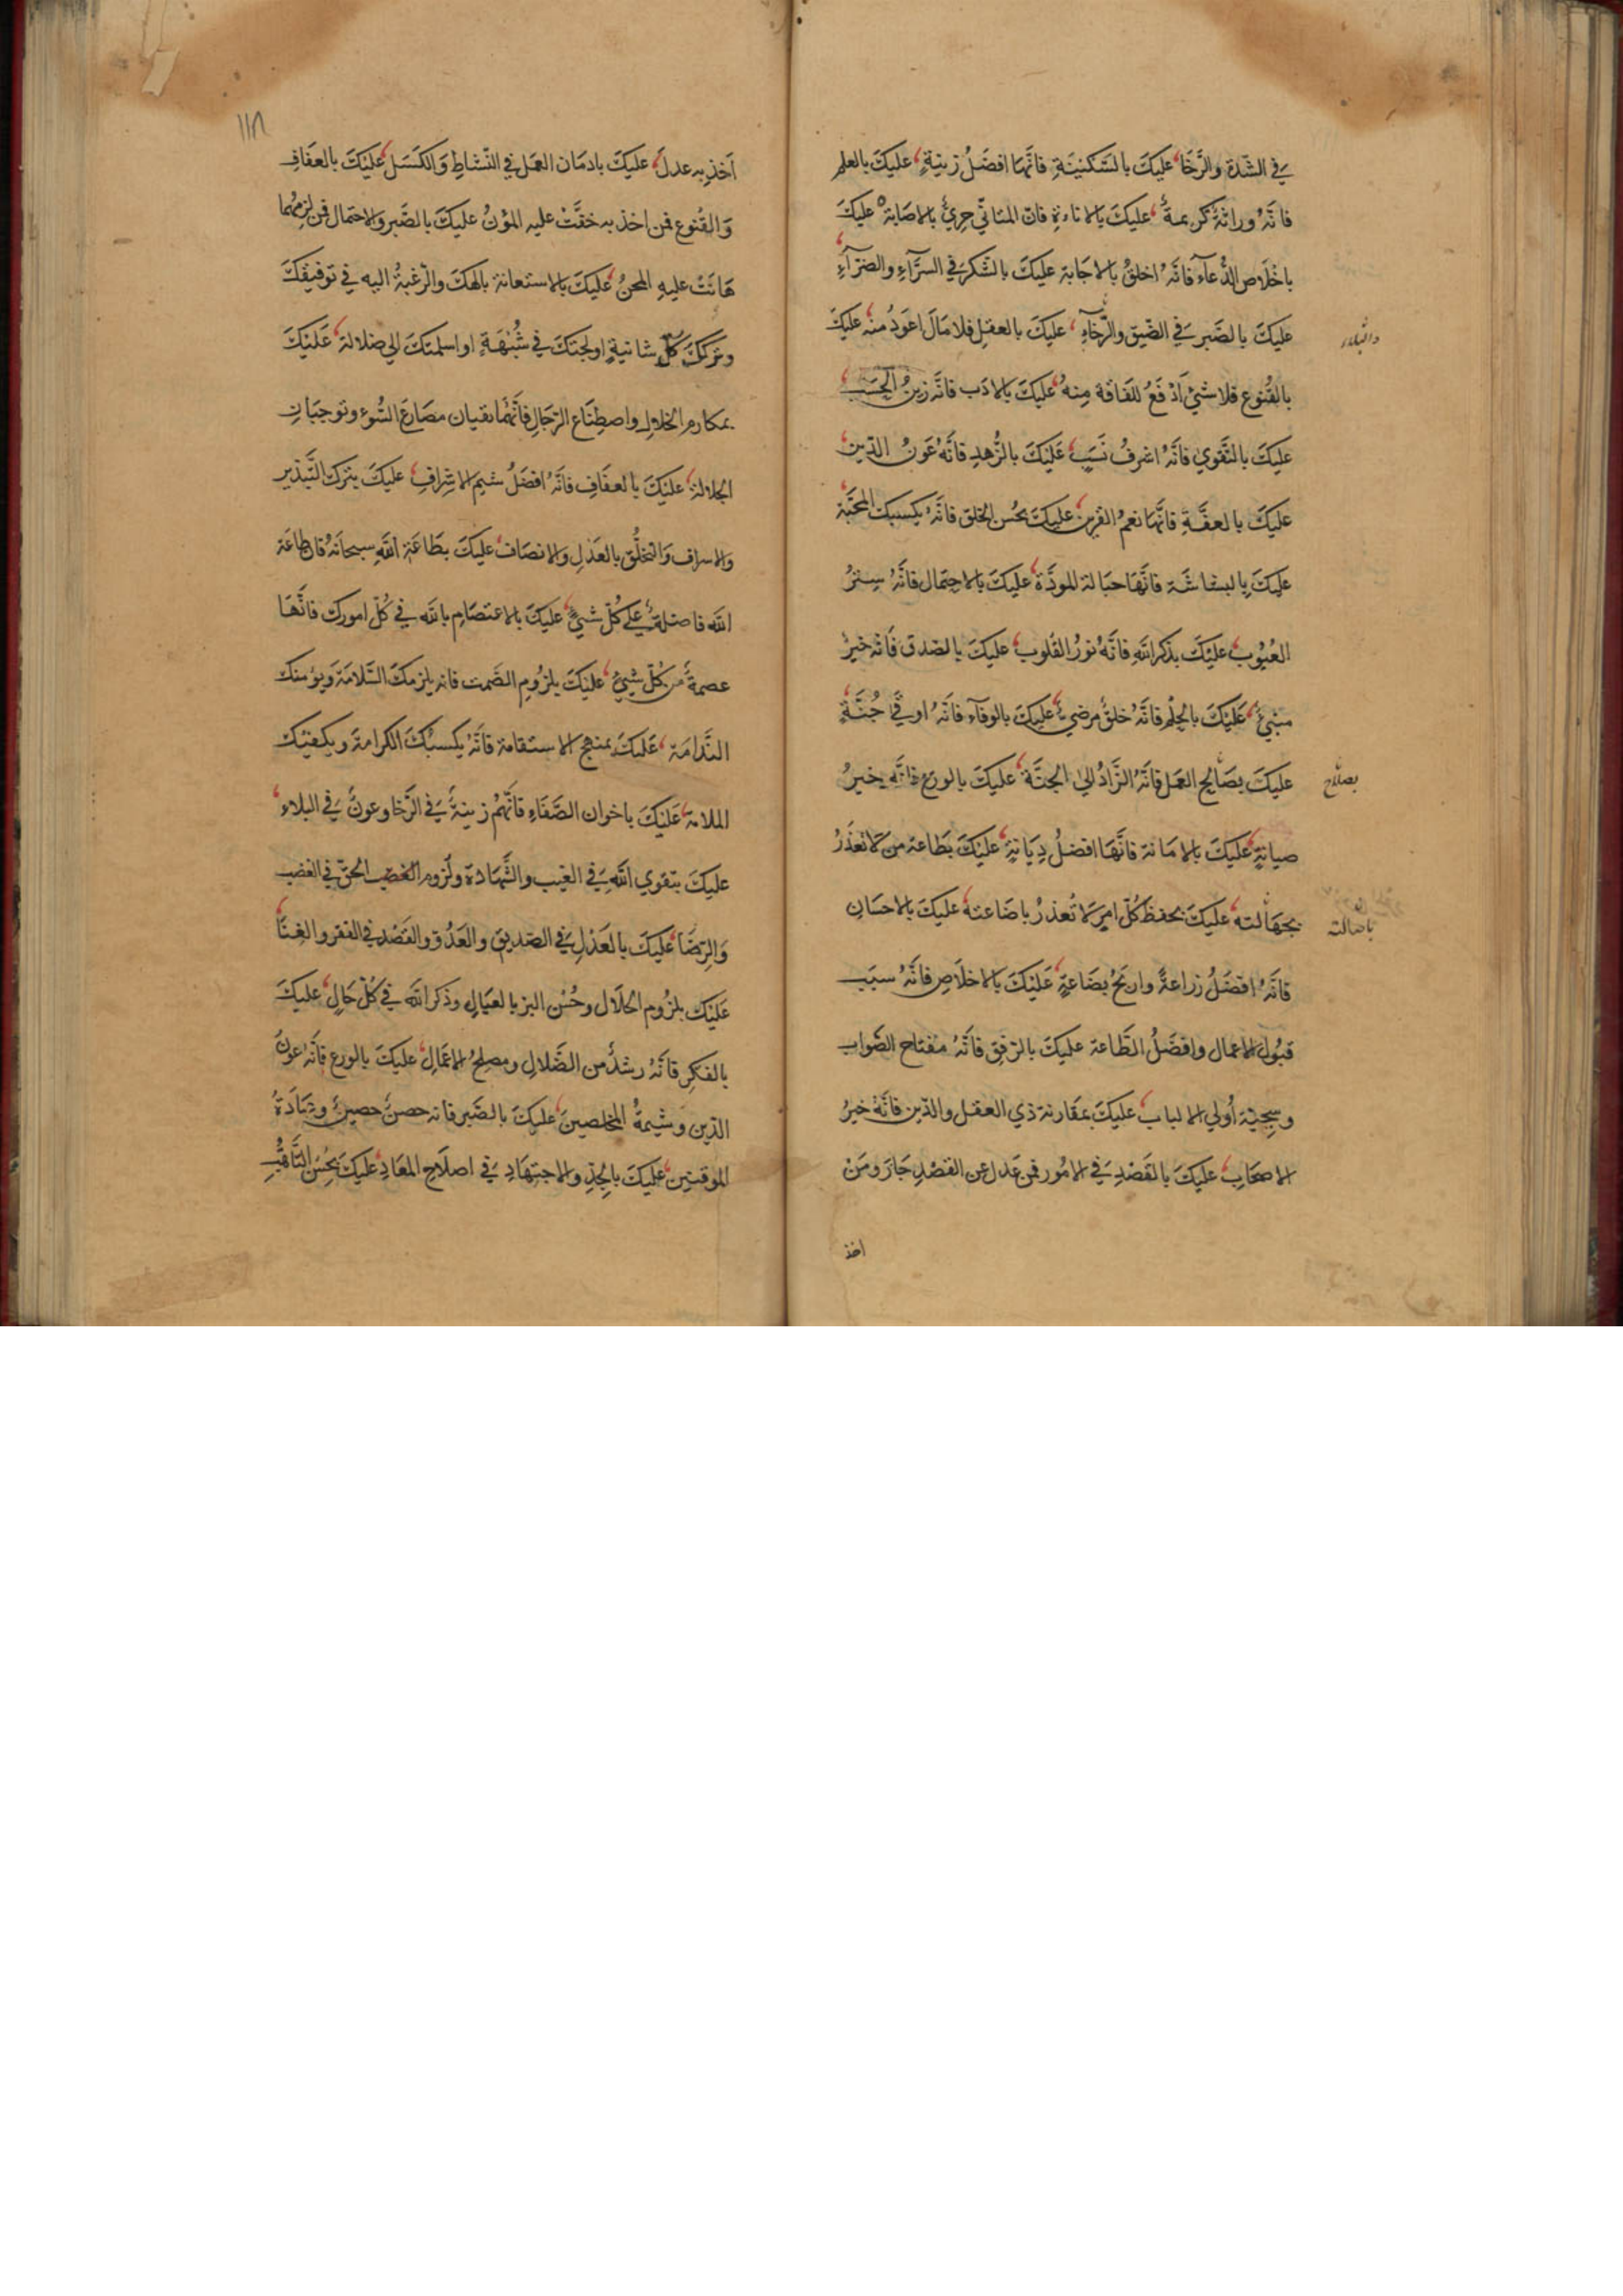 في الشّدة والرَّخَا عليكَ بالسَّكينَةِ فانَّها افضَلُ زينةٍ عليكَ بالعلم
فانَّهُ وراثةٌ كريمةٌ عليكَ بالاناءةِ فانّ المتانّي حريٌّ بالاصَابة عليكَ
باخْلَاص الدُّعآء فانَّهُ اخلقُ بالاجَابة عليكَ بالشّكر في السرَّآءِ والضرّآءِ
عليكَ بالصَبر في الضّيق والرَّخآءِ عليكَ بالعقلِ فلا مَالَ اعوَدُ منه عليكَ
والبلاء
بالقُنوع فلا شئ ادْفَعُ للفَاقة مِنهُ عليكَ بالادَب فانَّه زينُ الحَسَب
عليكَ بالتَّقوي فانَّهُ اشرفُ نَسَبٍ عَليْكَ بالزُّهدِ فانَّهُ عَونُ الدّين
عليكَ بالعفَّةِ فانَّها نعمُ القَرين عليكَ بحُسن الخلق فانَّهُ يكسبك المحَبَّة
عليكَ بالبشاشَة فانَّهَا حبَالة المودَّة عليكَ بالاحتِمال فانَّهُ سِترُ
العُيُوب عليْكَ بذكر اللهِ فانَّهُ نورُ القلوب عليكَ بالصّدق فَانَّه خيرُ
مبْنيً عَليْكَ بالحِلْم فانَّهُ خلقٌ مرضيٌّ عليكَ بالوفآء فانَّهُ اوقَي جُنَّةٍ
عليكَ بصَالح العمَل فانَّهُ الزَّادُ الي الجنَّة عليكَ بالورَع فانَّه خيرُ
بصلاح
صيانةٍ عليكَ بالامَانة فانَّها افضلُ دِيَانةٍ عليْكَ بطَاعة من لَا تعذَرُ
بجهَالته عليكَ بحفظ كُلّ امرٍ لَا تُعذرُ باضَاعته عليكَ بالاحسَان
باضالته
فانَّهُ افضَلُ زراعةً واربَحُ بضَاعةٍ عَليْكَ بالاخلَاصِ فانَّهُ سبَب
قبُول الاعمال وافضَلُ الطَّاعة عليكَ بالرّفق فانَّهُ مفتاح الصَّواب
وسجيّة اُولي الالباب عليكَ بمقَارنة ذي العقل والدّين فانَّهُ خيرُ
الاصحَابِ عليكَ بالقَصْدِ في الامُور فمن عَدل عن القصْدِ جَارَ ومَنْ
اخذ
١١٨
اَخذ به عدلَ عليكَ بادمَان العمَل في النّشاطِ وَالكَسَل عليْكَ بالعفَافِ
وَالقُنوع فمن اخذ به خفَّتْ عليه المؤنُ عليكَ بالصَّبر والاحتمال فمن لزمهُما
هَانَتْ عليهِ المِحنُ عليكَ بالاستعانة بالهكَ والرّغبةُ اليه في توفيقكَ
وتركِكَ كلَّ شانيةٍ اولجتكَ في شُبْهَةٍ او اسلمتكَ الي ضلالة عَليْكَ
بمكارم الخلال واصطِنَاع الرّجَالِ فانَّهُما تقيان مصَارعَ السُّوء وتوجبَان
الجلالة عليْكَ بالعفَافِ فانَّهُ افضَلُ شيم الاشِرافِ عليكَ بتركِ التَّبذير
والاسراف وَالتخلُّق بالعَدْلِ والانصَاف عليكَ بطَاعَة اللهِ سبحانَهُ فان طاعَة
الله فاضلةٌ علي كُلّ شيءٍ عليكَ بالاعتصَامِ بالله في كُلّ امورك فانَّهَا
عصمةٌ من كُلّ شيءٍ عليْكَ بلزُومِ الصَّمت فانه يلزمكَ السَّلامَةَ ويؤمنك
النَّدامَة عَليكَ بمنهج الاستقامة فانَّهُ يكسبُكَ الكرامةَ ويكفيك
الملامَة عَليْكَ باخوان الصَّفَاءِ فانَّهُم زينةٌ في الرَّخا وعونٌ في البلاءِ
عليكَ بتقوي اللهِ في الغيب والشَّهادة ولزوم الحقّ في الغضب
وَالرّضَا عليكَ بالعَدْلِ في الصَديق والعَدُوّ والقَصْد في الفقر والغِنَا
عَليْك بلزُوم الحَلَال وحُسْن البرّ بالعيَالِ وذكر الله في كُلّ حَالٍ عليكَ
بالفكر فانَّهُ رشدٌ من الضَّلالِ ومصلحُ الاعمَالِ عليكَ بالورع فانَّهُ عونُ
الدّين وشيمةُ المخلصينَ عليكَ بالصَّبر فانه حصنٌ حصينٌ وعبَادَةُ
الموقنين عليكَ بالجدّ والاجتهَادِ في اصلَاح المعَادِ عليكَ بحُسْن التَّاهُّبِ